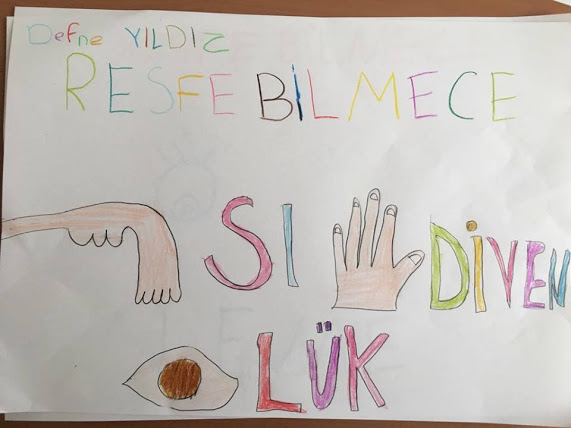 Defne YILDIZ
RESFEBİLMECE
SI DİVEN
LÜK